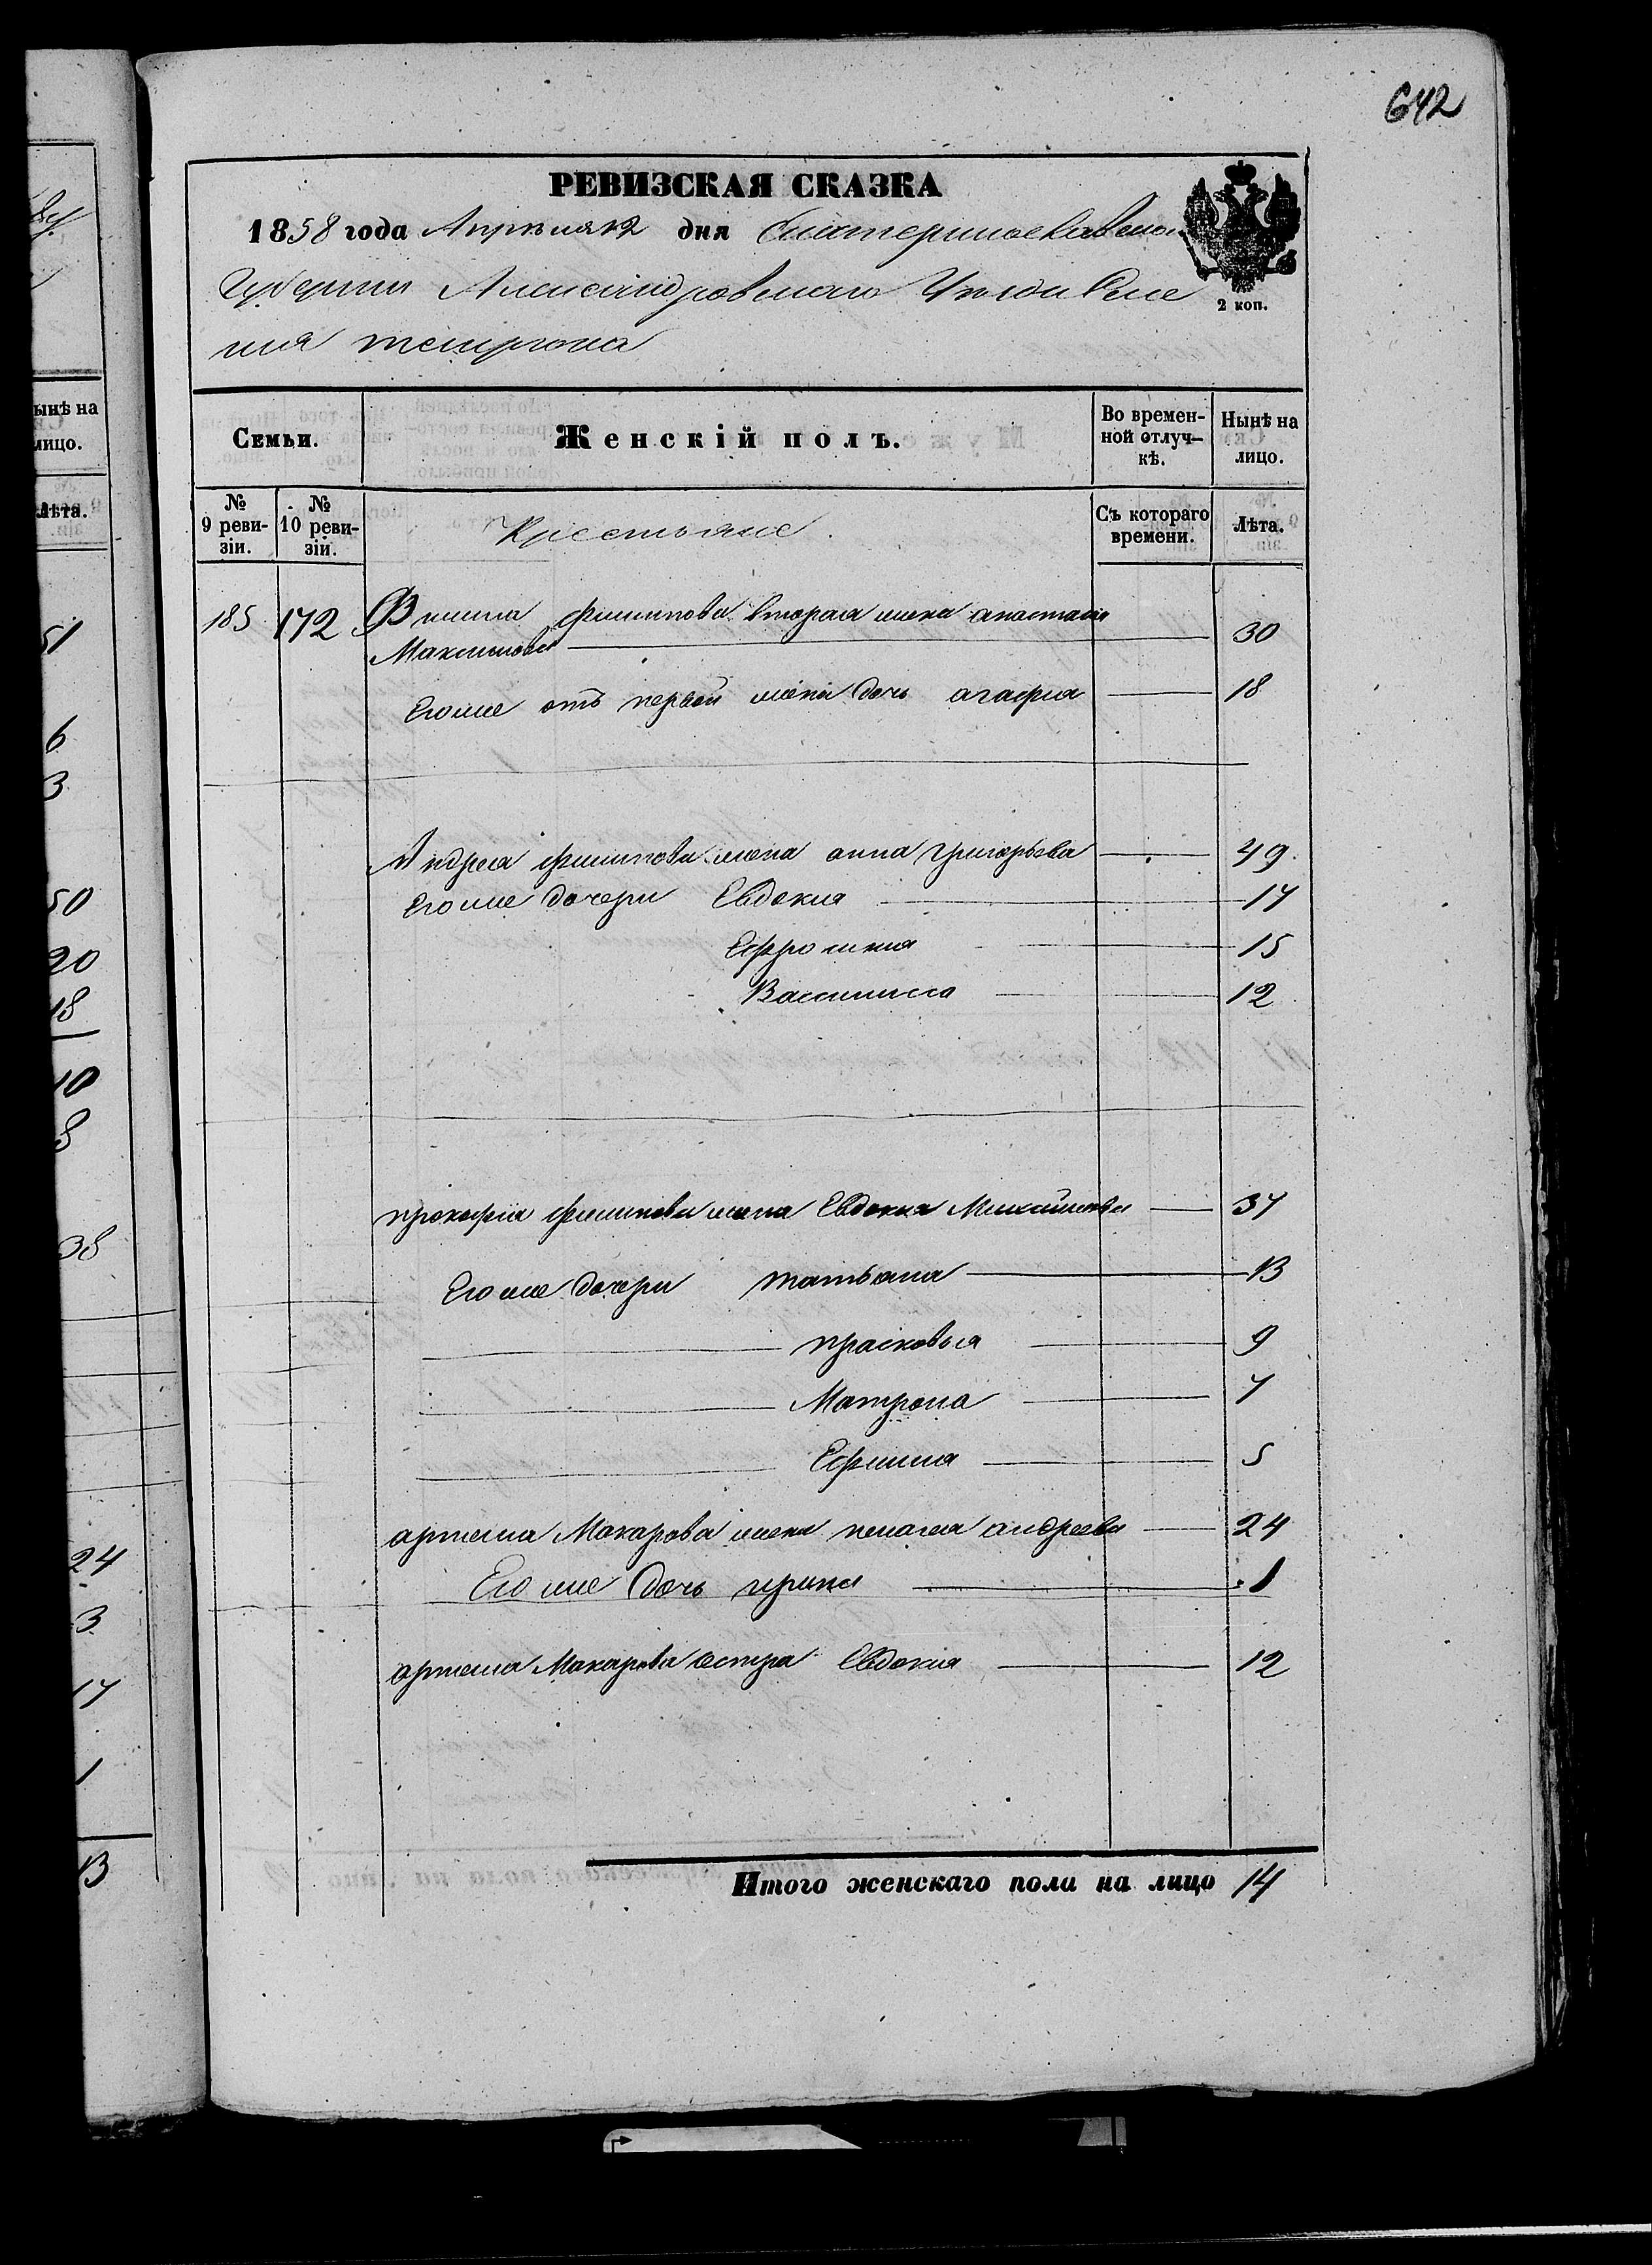 642
РЕВИЗСКАЯ СКАЗКА
1858 года Апрѣля 12 дня Екатеринославской
Губернии Александровского Уезда Селе
ния темрюка
2 коп.
Семьи.
Женскій полъ.
Во времен-
ной отлуч-
кѣ.
Нынѣ на
лицо.
№
9 реви-
зіи.
№
10 реви-
зіи.
Крестьяне.
Съ котораго
времени.
Лѣта.
185 172 филипова вторая жена анастасия
Максимова 30
Его же отъ первой жены дочь агафия 18
Андрея филипова жена анна григорьева 49
Его же дочери Евдокия 17
Ефросиния 15
Василисса 12
прокофия филипова жена Евдокия Максимова 37
Его же дочери татьяна 13
прасковья 9
Матрона 7
Ефимия 5
артема Макарова жена пелагея андреева 24
Его же дочь ирина 1
артема Макарова сестра Евдокия 12
Итого женскаго пола на лицо 14
ынѣ на
лицо.
Лѣта.
51
6
3
50
20
18
10
38
24
3
17
1
13